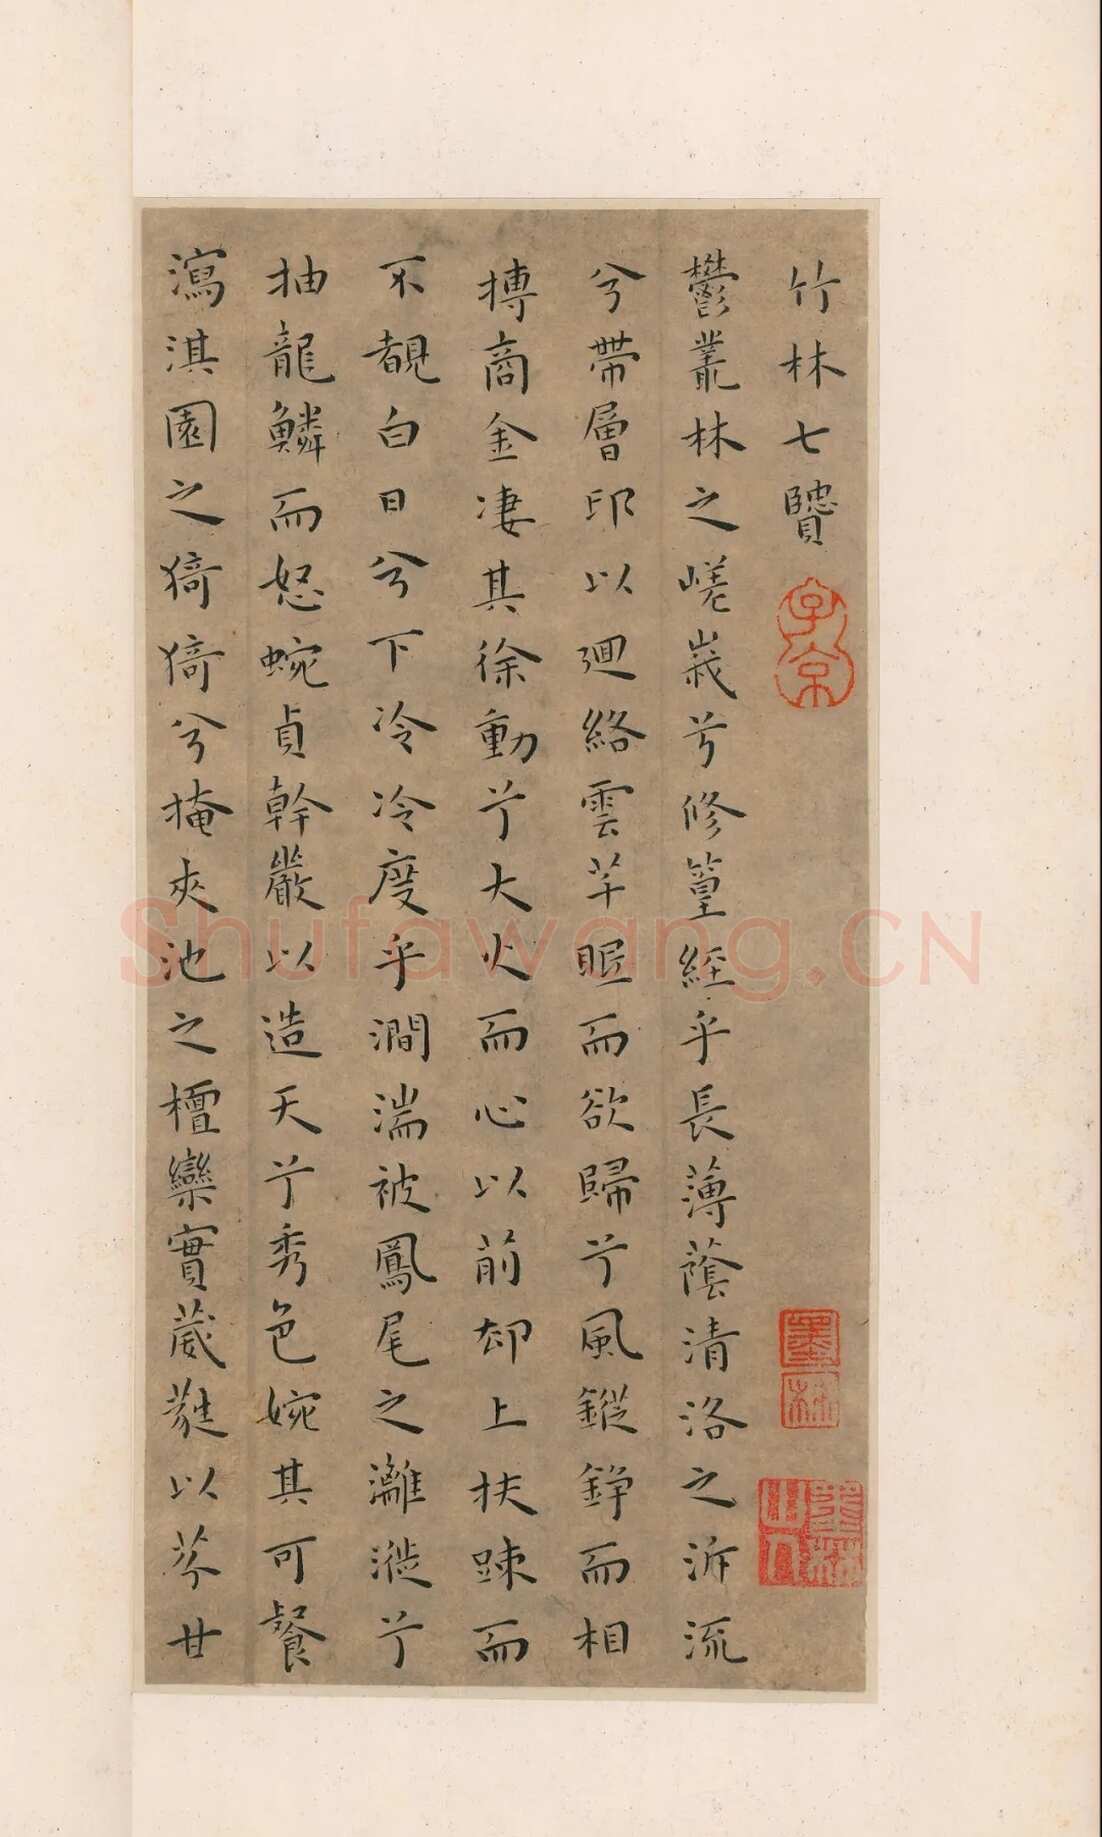 竹林七賢
鬱叢林之嵯峩兮修篁經乎長薄蔭清洛之泝流
兮帶層邙以廻絡雲芊眠而欲歸兮風鏦錚而相
摶商金凄其徐動兮大火而心以前却上扶踈而
不覩白日兮下冷冷度乎澗湍被鳳尾之灕漇兮
抽龍鱗而怒蜿貞幹巖以造天兮秀色婉其可餐
瀉淇園之猗猗兮掩夾池之檀欒實葳蕤以芬甘
子京
墨林
墨林山人
Shufawang.CN